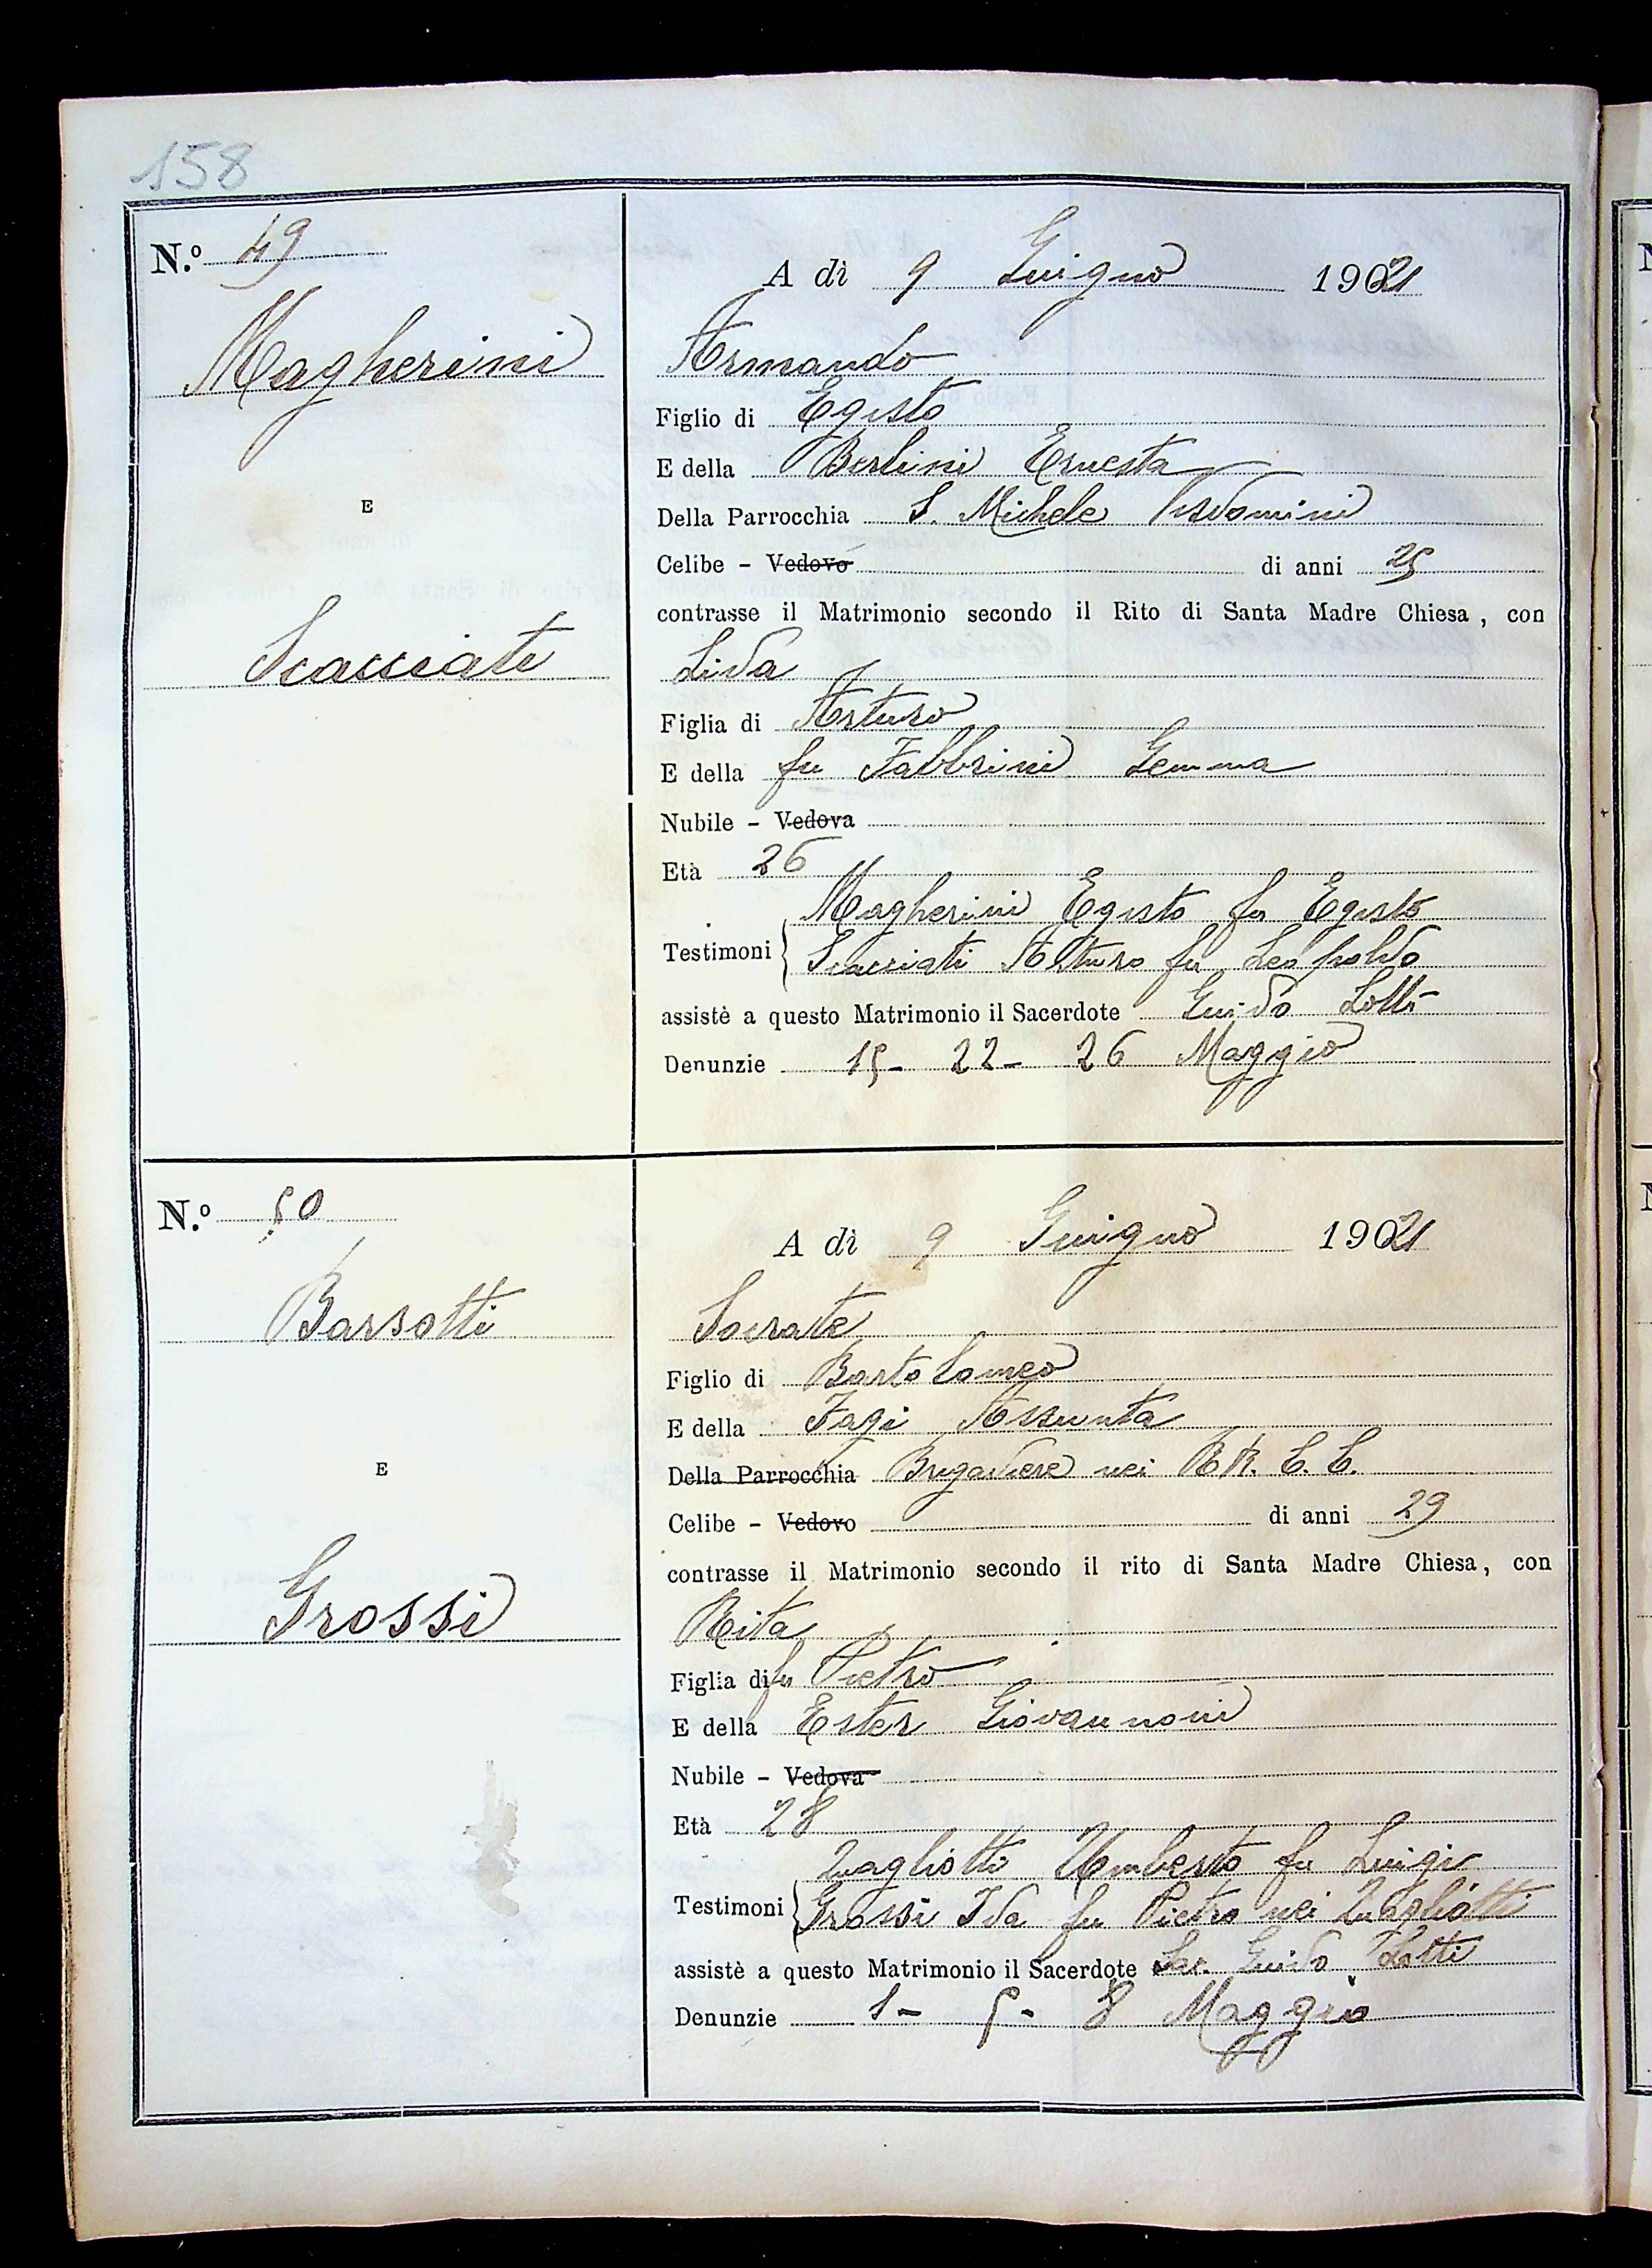 158
N.º 49
A dì 9 Giugno 1921
Magherini
Armando
Figlio di Egisto
E della Berlini Ernesta
E
Della Parrocchia S. Michele Visdomini
Celibe - Vedovo di anni 25
contrasse il Matrimonio secondo il Rito di Santa Madre Chiesa, con
Scacciati
Lida
Figlia di Arturo
E della fu Fabbrini Gemma
Nubile - Vedova
Età 26
Magherini Egisto fu Egisto
Testimoni Scacciati Arturo fu Leopoldo
assistè a questo Matrimonio il Sacerdote Guido Lotti
Denunzie 15 - 22 - 26 Maggio
N.º 50
A dì 9 Giugno 1921
Barsotti
Socrate
Figlio di Bartolomeo
E della Fagi Assunta
E
Della Parrocchia Brigadiere nei RR. C. C.
Celibe - Vedovo di anni 29
contrasse il Matrimonio secondo il rito di Santa Madre Chiesa, con
Grossi
Rita
Figlia di fu Pietro
E della Ester Giovannoni
Nubile - Vedova
Età 28
Quagliotti Umberto fu Luigi
Testimoni Grossi Ida fu Pietro nei Quagliotti
assistè a questo Matrimonio il Sacerdote Sac. Guido Lotti
Denunzie 1 - 5 - 8 Maggio